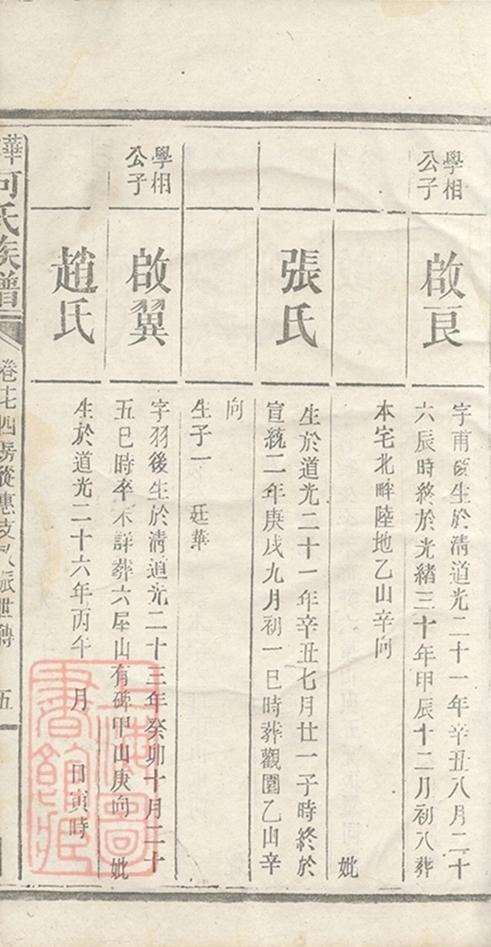 學相
公子
啟良
字甫臣生於淸道光二十一年辛丑八月二十
六辰時終於光緒三十年甲辰十二月初八葬
本宅北畔陸地乙山辛向
妣
張氏
生於道光二十一年辛丑七月廿一子時終於
宣統二年庚戌九月初一巳時葬觀園乙山辛
向
生子一 廷華
學相
公子
啟翼
字羽後生於淸道光二十三年癸卯十月二十
五巳時卒不詳葬六屋山有碑甲山庚向 妣
趙氏
生於道光二十六年丙午 月 日寅時
華
何氏族譜
四房從惠支
五
上海圖
書館藏